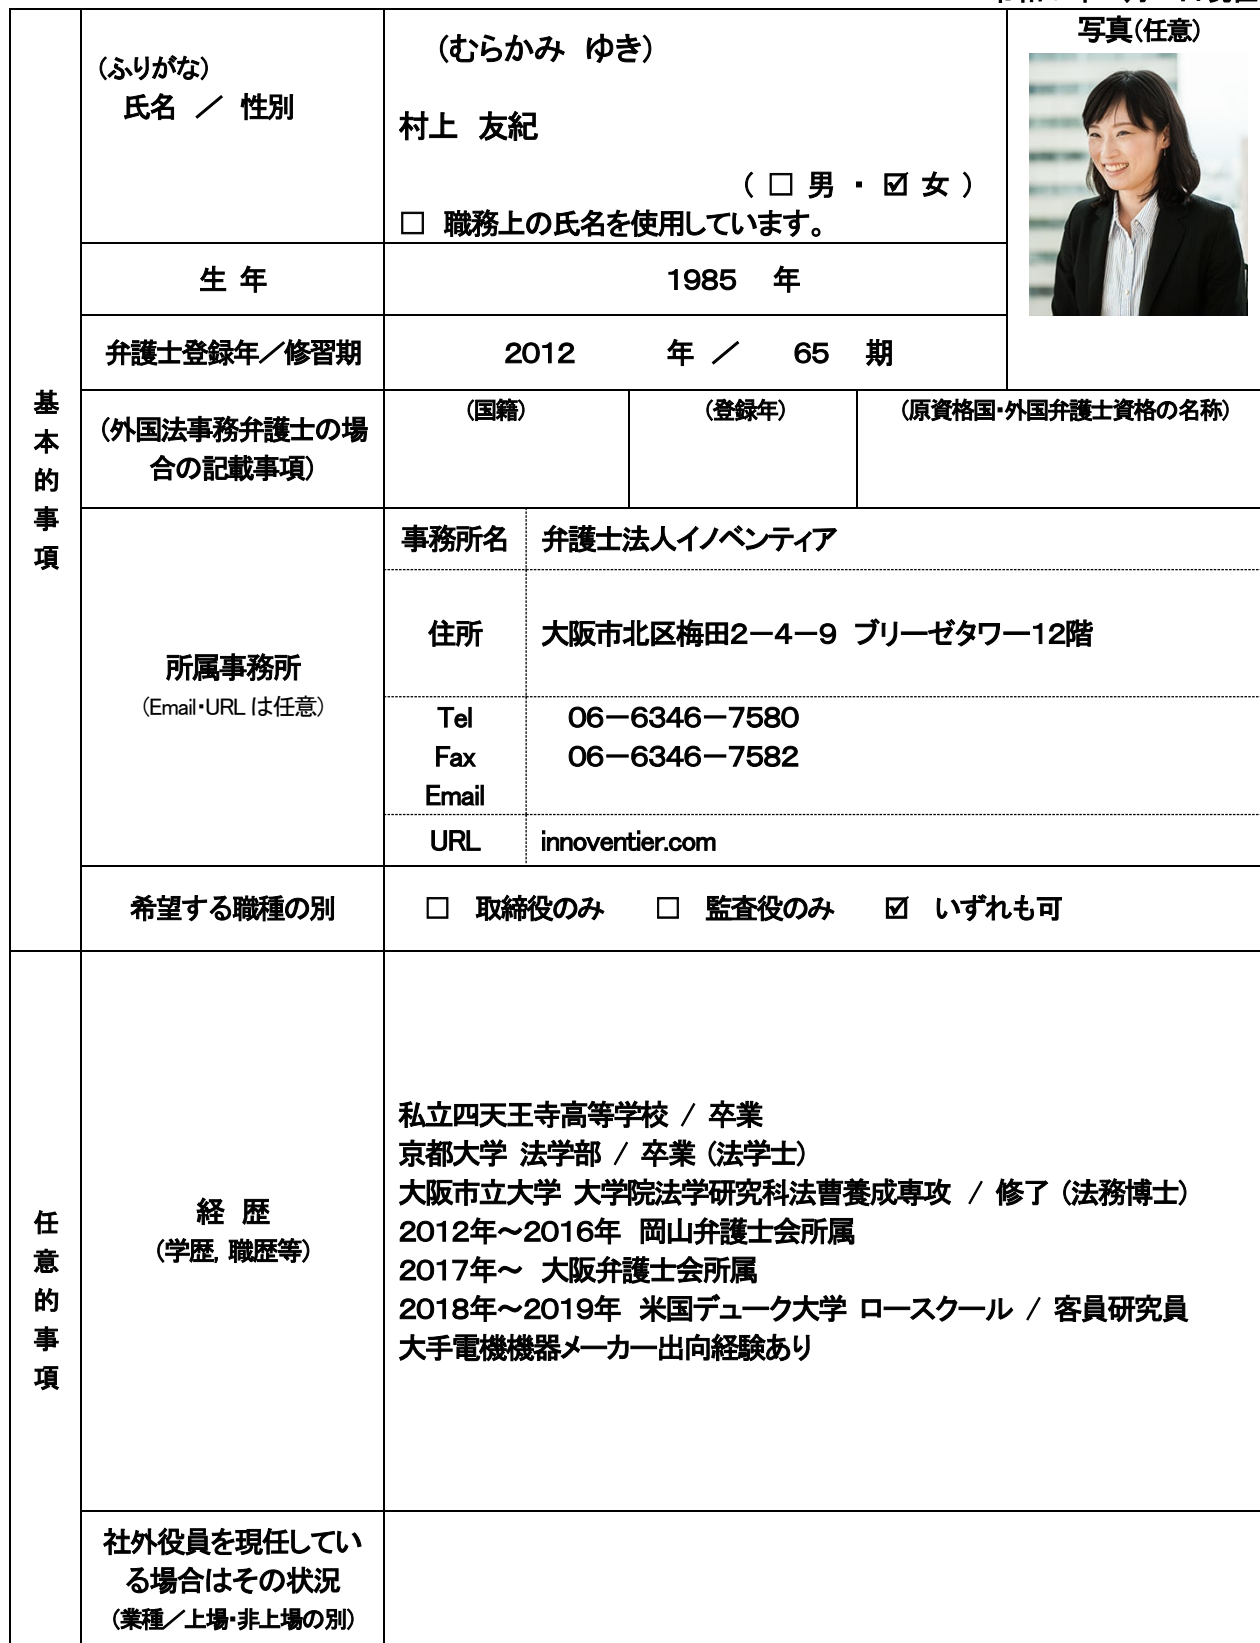 写真(任意)
(ふりがな)
氏名 ／ 性別
(むらかみ ゆき)
村上 友紀
( □ 男 ・ ☑ 女 )
□ 職務上の氏名を使用しています。
生 年
1985 年
弁護士登録年／修習期
2012 年 ／ 65 期
基本的事項
(外国法事務弁護士の場
合の記載事項)
(国籍)
(登録年)
(原資格国・外国弁護士資格の名称)
所属事務所
(Email・URL は任意)
事務所名 弁護士法人イノベンティア
住所 大阪市北区梅田2－4－9 ブリーゼタワー12階
Tel 06－6346－7580
Fax 06－6346－7582
Email
URL innoventier.com
希望する職種の別
□ 取締役のみ □ 監査役のみ ☑ いずれも可
任意的事項
経 歴
(学歴, 職歴等)
私立四天王寺高等学校 / 卒業
京都大学 法学部 / 卒業 (法学士)
大阪市立大学 大学院法学研究科法曹養成専攻 / 修了 (法務博士)
2012年～2016年 岡山弁護士会所属
2017年～ 大阪弁護士会所属
2018年～2019年 米国デューク大学 ロースクール / 客員研究員
大手電機機器メーカー出向経験あり
社外役員を現任してい
る場合はその状況
(業種／上場・非上場の別)